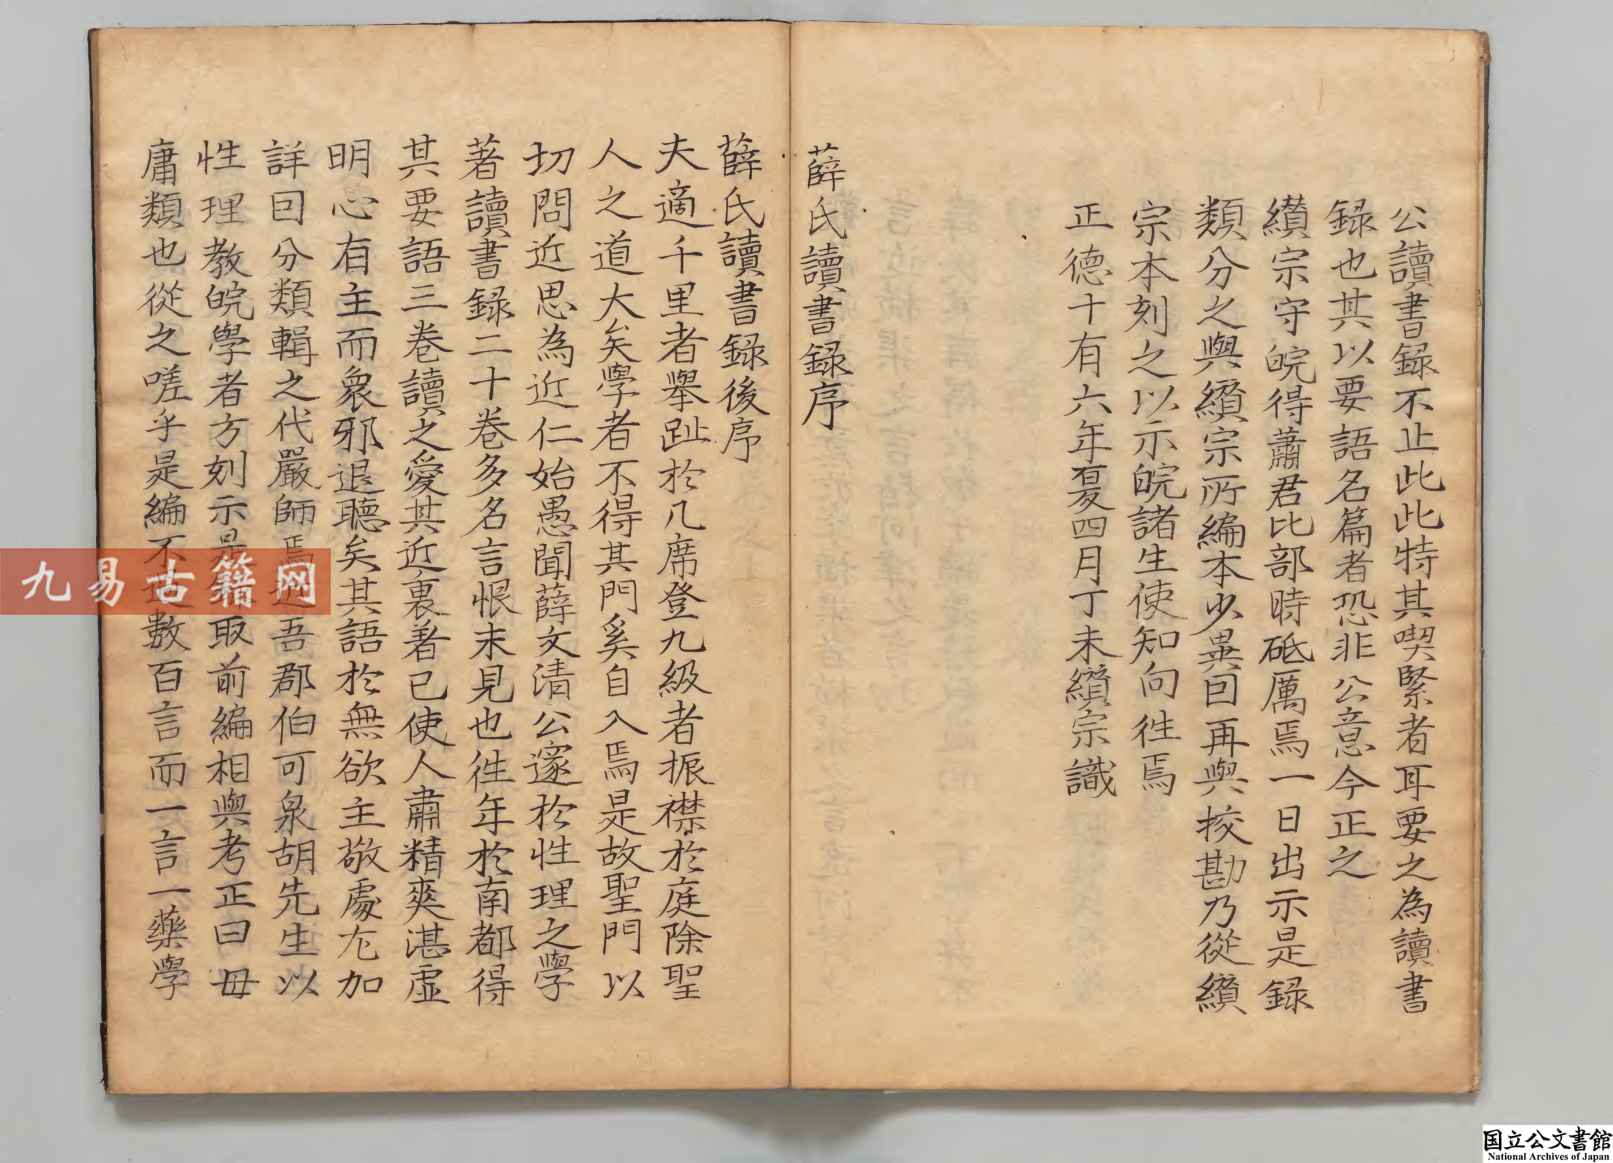 公讀書録不止此此特其喫緊者耳要之為讀書
録也其以要語名篇者恐非公意今正之
纘宗守皖得蕭君比部時砥厲焉一日出示是録
類分之與纘宗所編本少異囙再與挍勘乃從纘
宗本刻之以示皖諸生使知向徃焉
正德十有六年夏四月丁未纘宗識
薛氏讀書録序
薛氏讀書録後序
夫適千里者舉趾於几席登九級者振襟於庭除聖
人之道大矣學者不得其門奚自入焉是故聖門以
切問近思為近仁始愚聞薛文清公邃於性理之學
著讀書録二十卷多名言恨未見也徃年於南都得
其要語三卷讀之愛其近裏著已使人肅精爽湛虛
明忽有主而衆邪退聽矣其語於無欲主敬處尤加
詳囙分類輯之代嚴師焉 吾郡伯可泉胡先生以
性理教皖學者方刻示是 取前編相與考正曰毋
庸類也從之嗟乎是編不 數百言而一言一藥學
九易古籍网
国立公文書館
National Archives of Japan